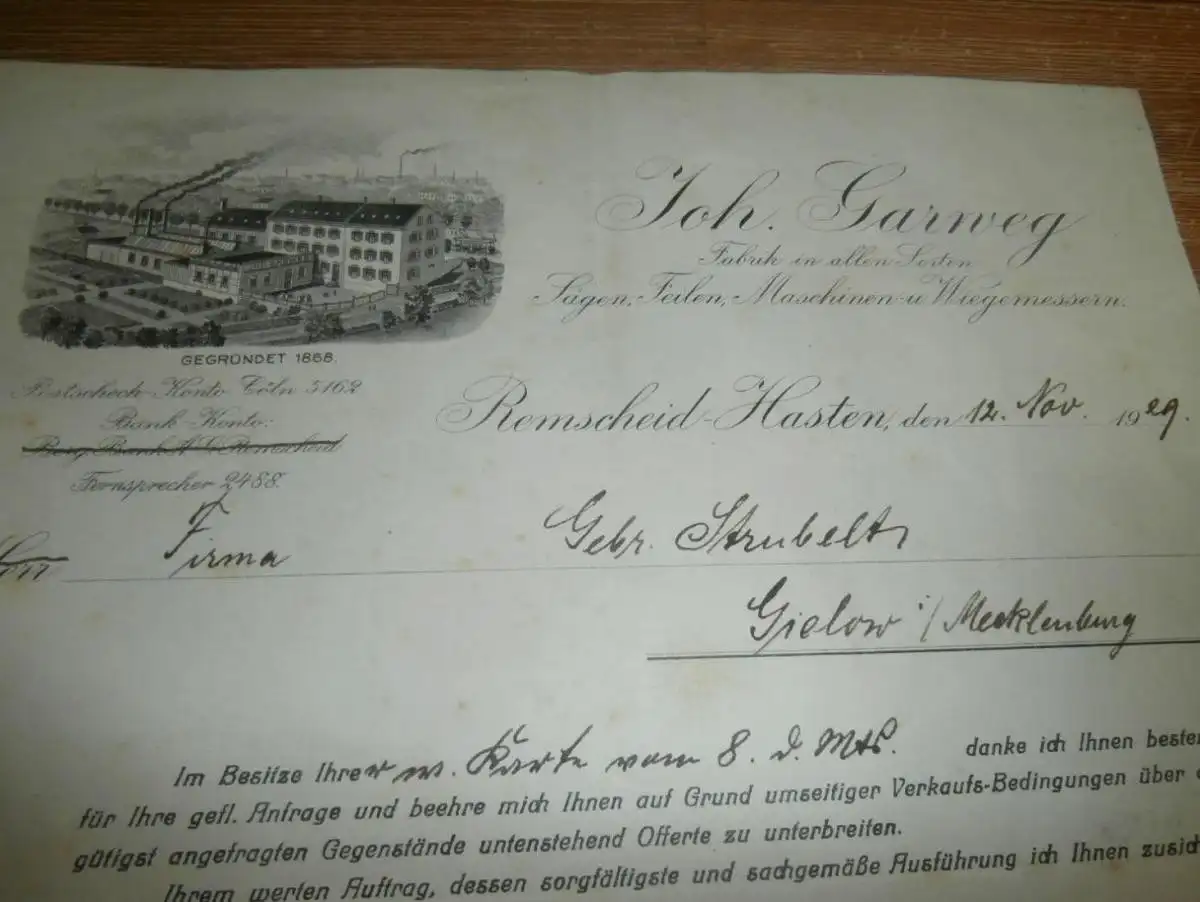 Joh. Garweg
Fabrik in allen Sorten
Sägen, Feilen, Maschinen- u. Wiegemessern.
GEGRÜNDET 1868.
Postscheck-Konto Cöln 5162
Bank-Konto:
Berg. Bank A.G. Remscheid
Fernsprecher 2488.
Remscheid-Hasten, den 12. Nov. 1929.
Firma Gebr. Strubelt
Gielow i/Mecklenburg
Im Besitze Ihrer w. Karte vom 8. d. Mts. danke ich Ihnen besten
für Ihre gefl. Anfrage und beehre mich Ihnen auf Grund umseitiger Verkaufs-Bedingungen über
gütigst angefragten Gegenstände untenstehend Offerte zu unterbreiten.
Ihrem werten Auftrag, dessen sorgfältigste und sachgemäße Ausführung ich Ihnen zusich